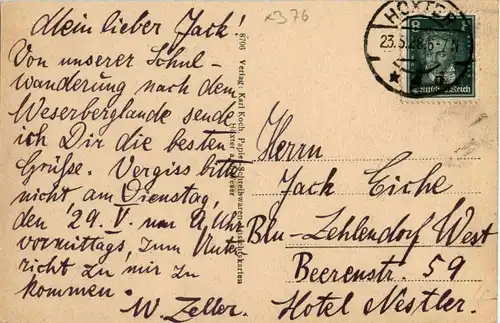 Mein lieber Jack!
Von unserer Schul-
wanderung nach dem
Weserberglande sende
ich Dir die besten
Grüße. Vergiss bitte
nicht am Dienstag,
den 29. V. um Uhr
vormittags, zum Unter
richt zu mir zu
kommen.
W. Zeller.
376
8706 Verlag: Karl Koch, Papier, Schreibwaren
Höxter a. Weser
HÖXTER
23.5.28.6-7
8
Deutsches Reich
Herrn
Jack Eiche
Bln-Zehlendorf West
Beerenstr. 59
Hotel Nestler.